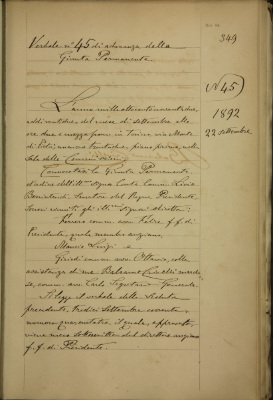 349
Verbale n° 45 di adunanza della
Giunta Permanente.
(N 45)
1892
22 settembre
L'anno mille ottocento novantadue,
addì ventidue, del mese di settembre, alle
ore due e mezza pom. in Torino, via Monte
di Pietà, numero trentadue, piano primo, nella
Sala delle
Convocatasi la Giunta Permanente
d'ordine dell'Ill. Signor Conte Comm. Livio
Benintendi Senatore del Regno, Presidente,
sono convenuti gli Ill. Signori direttori:
comm. avv. f. f. di
Presidente, quale membro anziano,
Luigi e
comm. avv. Ottavio, colla
assistenza di me
cav. Carlo Segretario Generale.
Si legge il verbale della Seduta
precedente, tredici settembre corrente,
numero quarantaquattro, il quale, approvato,
viene sottoscritto dal direttore anziano
f. f. di Presidente.